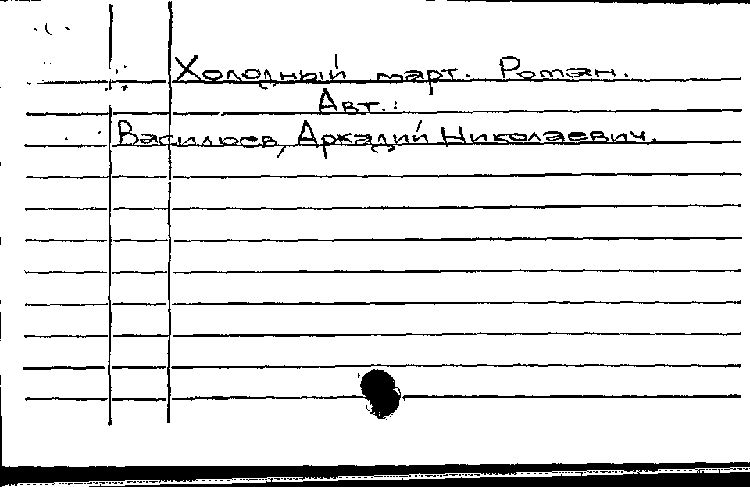 Холодный март. Роман.
Авт.:
Васильев, Аркадий Николаевич.